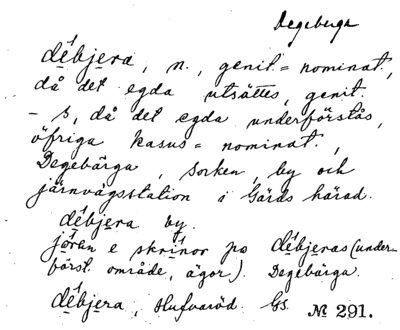 Degeberga
dèbjera, n., genit. = nominat.,
då det egda utsättes, genit.
- s, då det egda underförstås,
öfriga kasus = nominat.,
Degebärga, socken, by och
järnvägsstation i Gärds härad.
dèbjera by.
jöran e skrinor po dèbjeras (under-
först. område, ägor). Degebärga.
dèbjera, Hufvaröd. Gs. № 291.